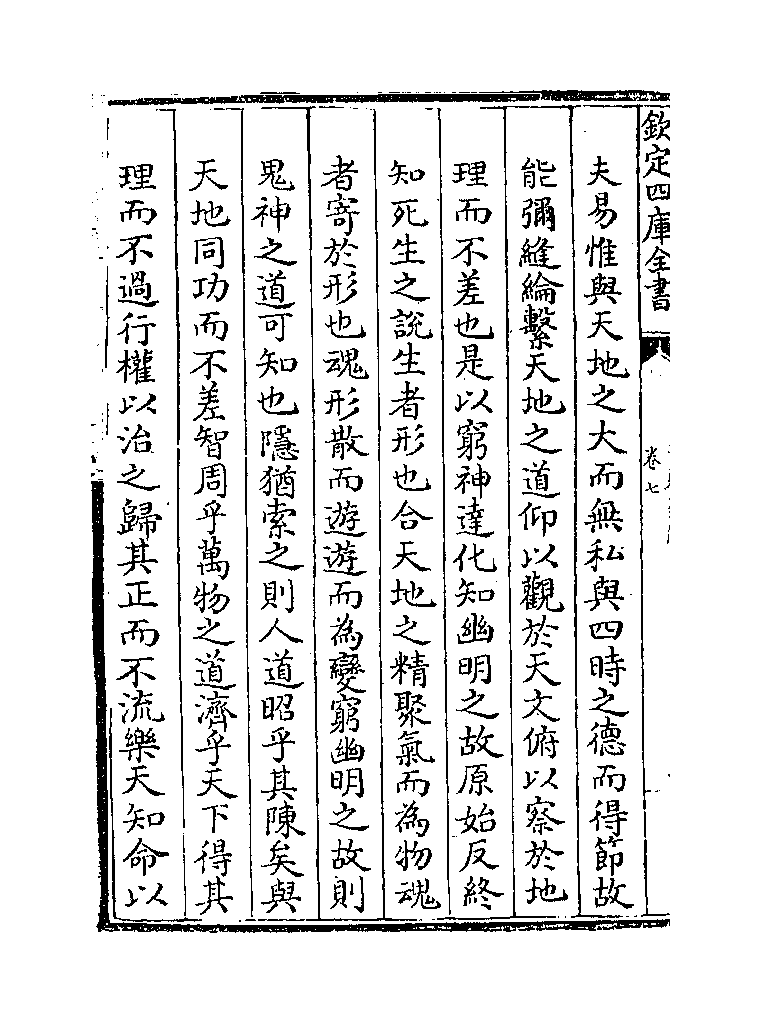 欽定四庫全書
卷七
夫易惟與天地之大而無私與四時之德而得節故
能彌縫綸繫天地之道仰以觀於天文俯以察於地
理而不差也是以窮神達化知幽明之故原始反終
知死生之說生者形也合天地之精聚氣而為物魂
者寄於形也魂形散而遊遊而為變窮幽明之故則
鬼神之道可知也隱猶索之則人道昭乎其陳矣與
天地同功而不差智周乎萬物之道濟乎天下得其
理而不過行權以治之歸其正而不流樂天知命以